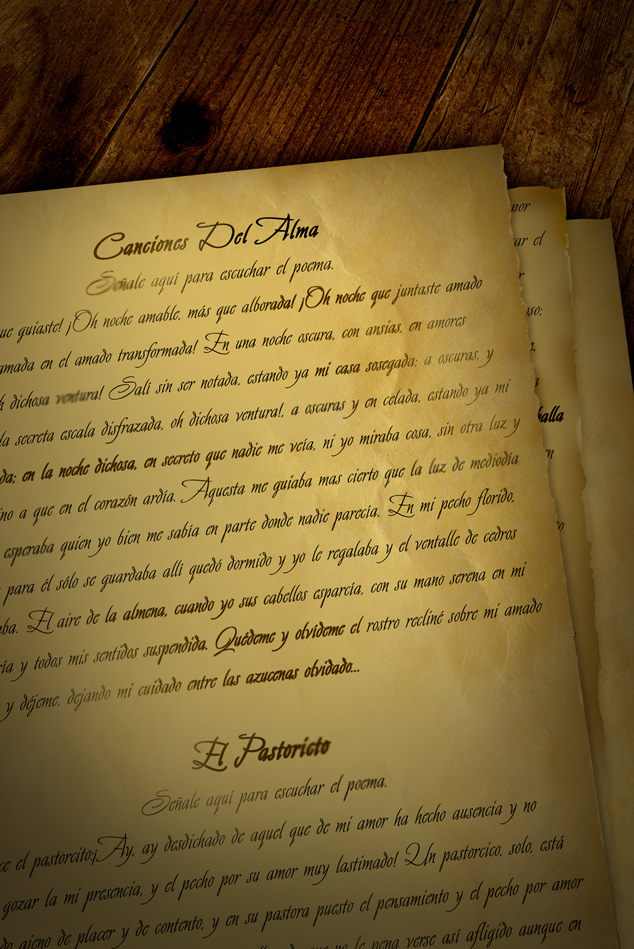 Canciones Del Alma
Señale aquí para escuchar el poema.
que guiaste! ¡Oh noche amable, más que alborada! ¡Oh noche que juntaste amado
amada en el amado transformada! En una noche oscura, con ansias, en amores
oh dichosa ventura! Salí sin ser notada, estando ya mi casa sosegada; a oscuras, y
la secreta escala disfrazada, oh dichosa ventura!, a oscuras y en celada, estando ya mi
da; en la noche dichosa, en secreto que nadie me veía, ni yo miraba cosa, sin otra luz y
ino a que en el corazón ardía. Aquesta me guiaba mas cierto que la luz de mediodía
esperaba quien yo bien me sabía en parte donde nadie parecía. En mi pecho florido,
para él sólo se guardaba allí quedó dormido y yo le regalaba y el ventalle de cedros
aba. El aire de la almena, cuando yo sus cabellos esparcía, con su mano serena en mi
ía y todos mis sentidos suspendida. Quédeme y olvideme el rostro recliné sobre mi amado
y déjeme, dejando mi cuidado entre las azucenas olvidado...
El Pastoricto
Señale aquí para escuchar el poema.
ce el pastorcito¡Ay, ay desdichado de aquel que de mi amor ha hecho ausencia y no
gozar la mi presencia, y el pecho por su amor muy lastimado! Un pastorcico, solo, está
do ajeno de placer y de contento, y en su pastora puesto el pensamiento y el pecho por amor
que no le pena verse así afligido aunque en
nor
ar el
r
so;
halla